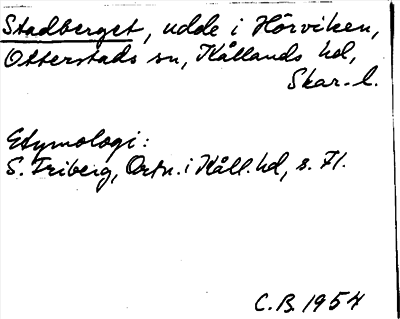 Stadberget, udde i Hörviken,
Otterstads sn, Kållands hd,
Skar. l.
Etymologi:
S. Friberg, Ortn. i Kåll. hd, s. 71.
C.B. 1954